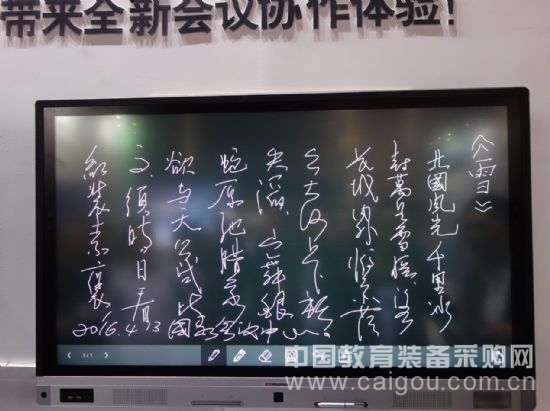 带来全新会议协作体验!
《雪》
北國风光千里冰
封萬里雪飄,望
长城内外惟余莽
々大河上下顿
失滔,山舞銀
蛇原驰腊象
欲与天公试比
高,须晴日看
紅装素裹
2016.4.13 國家会议中心
1/1
中国教育装备采购网
www.caigou.com.cn